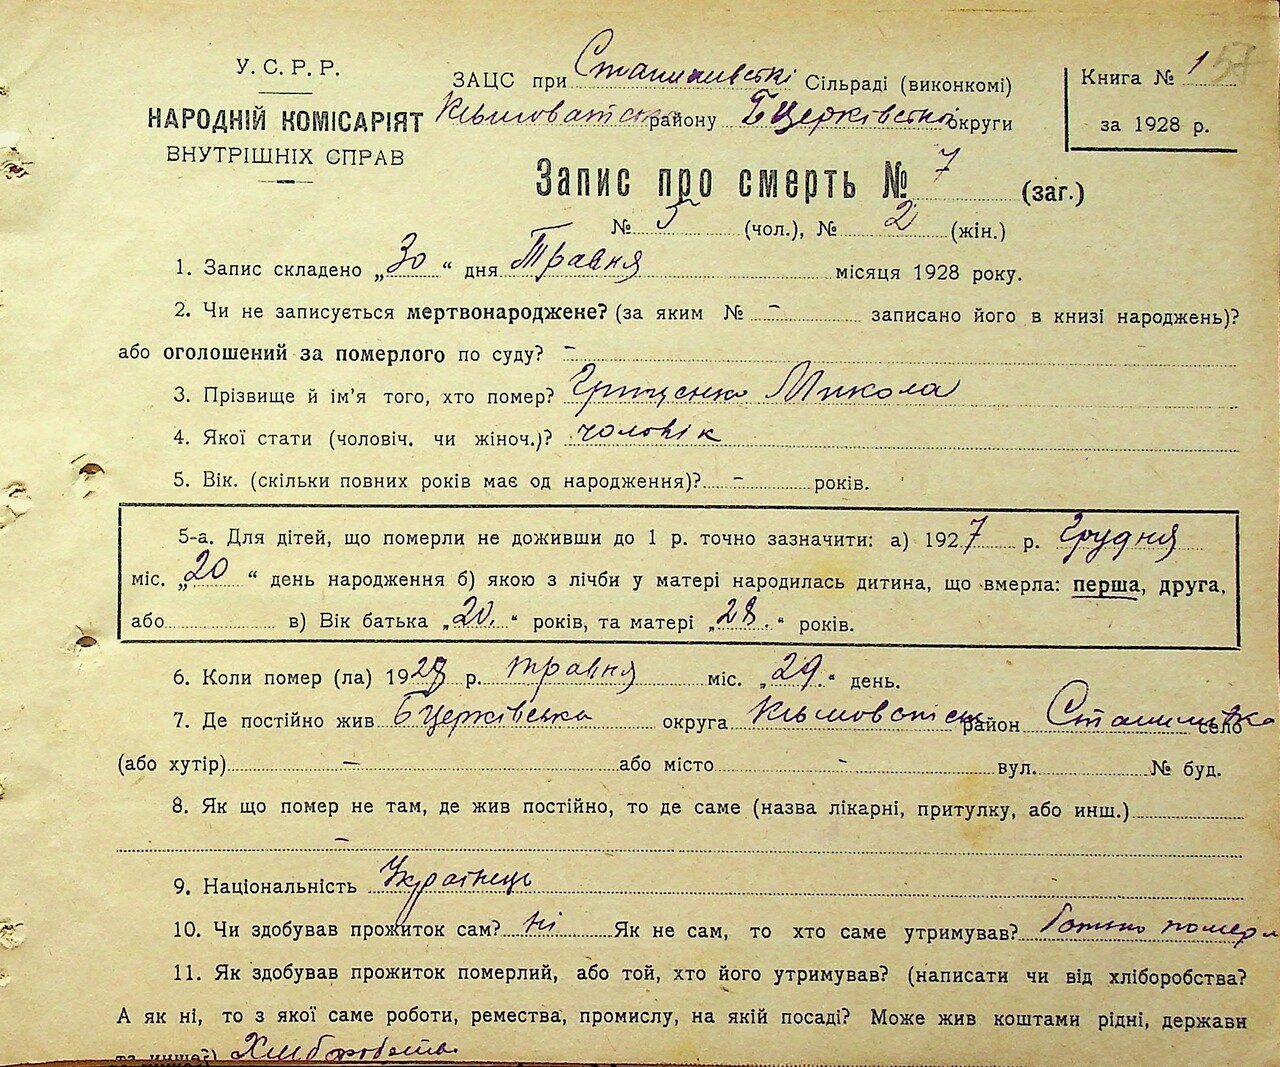 У. С. Р. Р.
НАРОДНІЙ КОМІСАРІЯТ
ВНУТРІШНІХ СПРАВ
ЗАЦС при Сільраді (виконкомі)
району Бцерківської округи
Книга № 1 57
за 1928 р.
Запис про смерть № 7 (заг.)
№ 5 (чол.), № 2 (жін.)
1. Запис складено „30“ дня Травня місяця 1928 року.
2. Чи не записується мертвонароджене? (за яким № - записано його в книзі народжень)?
або оголошений за померлого по суду? -
3. Прізвище й ім’я того, хто помер? Гриценко Микола
4. Якої стати (чоловіч. чи жіноч.)? чоловік
5. Вік. (скільки повних років має од народження)? - років.
5-а. Для дітей, що померли не доживши до 1 р. точно зазначити: а) 1927 р. Грудня
міс. „20“ день народження б) якою з лічби у матері народилась дитина, що вмерла: перша, друга,
або в) Вік батька „20.“ років, та матері „28.“ років.
6. Коли помер (ла) 1928 р. травня міс. „29.“ день.
7. Де постійно жив Бцерківська округа район село
(або хутір) - або місто - вул. № буд.
8. Як що помер не там, де жив постійно, то де саме (назва лікарні, притулку, або инш.)
-
9. Національність Українець
10. Чи здобував прожиток сам? ні Як не сам, то хто саме утримував? батько
11. Як здобував прожиток померлий, або той, хто його утримував? (написати чи від хліборобства?
А як ні, то з якої саме роботи, ремества, промислу, на якій посаді? Може жив коштами рідні, держави
та инше?) Хліборобство